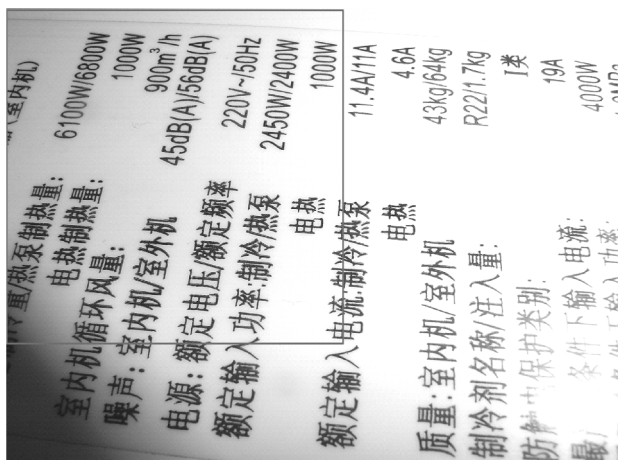 (室内机)
量/热泵制热量: 6100W/6800W
电热制热量: 1000W
室内机循环风量: 900m³/h
噪声: 室内机/室外机 45dB(A)/56dB(A)
电源: 额定电压/额定频率 220V~/50Hz
额定输入功率:制冷/热泵 2450W/2400W
电热 1000W
额定输入电流:制冷/热泵 11.4A/11A
电热 4.6A
质量:室内机/室外机 43kg/64kg
制冷剂名称/注入量: R22/1.7kg
防触电保护类别: I类
条件下输入电流: 19A
条件下输入功率: 4000W